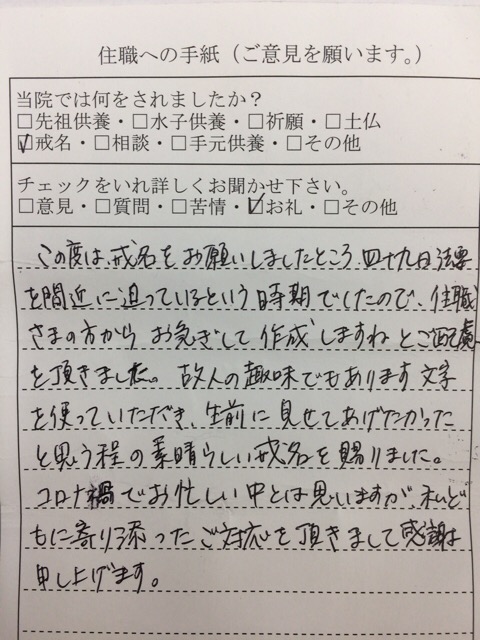 住職への手紙（ご意見を願います。）
当院では何をされましたか？
□先祖供養・□水子供養・□祈願・□土仏
☑戒名・□相談・□手元供養・□その他
チェックをいれ詳しくお聞かせ下さい。
□意見・□質問・□苦情・☑お礼・□その他
この度は、戒名をお願いしましたところ 四十九日法要
を間近に迫っているという時期でしたので、住職
さまの方から お急ぎして 作成しますね とご配慮
を頂きました。故人の趣味でもあります文字
を使っていただき、生前に見せてあげたかった
と思う程の素晴らしい戒名を賜りました。
コロナ禍でお忙しい中とは思いますが、私ど
もに寄り添ったご対応を頂きまして感謝
申し上げます。